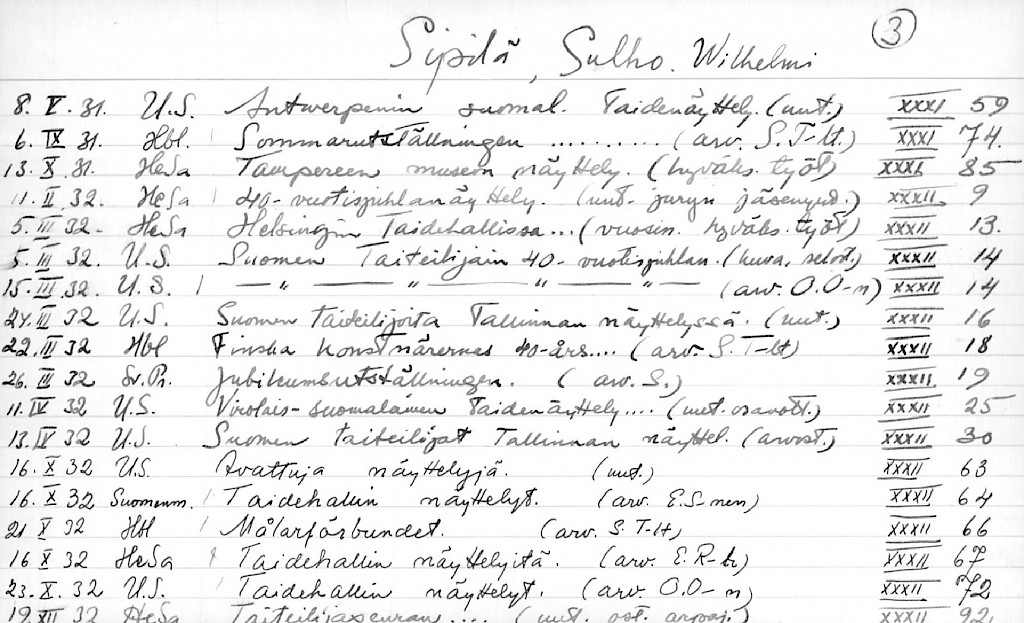 3
Sipilä, Sulho. Wilhelmi
8. V. 31. U.S. Antwerpenin suomal. Taidenäyttely. (uut.) XXXI 59
6. IX 31. Hbl. Sommarutställningen .......... (arv. S.T-lt.) XXXI 74.
13. X. 31. HeSa Tampereen museon näyttely. (hyväks. työt) XXXI 85
11. II. 32. HeSa 40-vuotisjuhlanäyttely. (uut. juryn jäsenyyd.) XXXII. 9
5. III 32. HeSa Helsingin Taidehallissa... (vuosin. hyväks. työt) XXXII 13.
5. III 32. U.S. Suomen Taiteilijain 40-vuotisjuhlan. (kuva, selost.) XXXII 14
15. III. 32. U.S. — " — " — " — " — (arv. O.O-n) XXXII 14
24. III 32 U.S. Suomen taiteilijoita Tallinnan näyttelyssä. (uut.) XXXII 16
22. III 32 Hbl Finska konstnärernas 40-års.... (arv. S.T-lt) XXXII 18
26. III 32 Sv.Pr. Jubileumsutställningen. (arv. S.) XXXII 19
11. IV 32 U.S. Virolais-suomalainen Taidenäyttely.... (uut. osanott.) XXXII 25
13. IV 32 U.S. Suomen taiteilijat Tallinnan näyttel. (arvost.) XXXII 30
16. X 32 U.S. Avattuja näyttelyjä. (uut.) XXXII 63
16. X 32 Suomenm. Taidehallin näyttelyt. (arv. E.S-nen) XXXII 64
21 X 32 Hbl Målarförbundet. (arv. S.T-lt) XXXII 66
16 X 32 HeSa Taidehallin näyttelyitä. (arv. E.R-r) XXXII 67
23. X. 32 U.S. Taidehallin näyttelyt. (arv. O.O-n) XXXII 72
19. XII 32 HeSa Taiteilijaseuran .... (uut. ost. arpaj.) XXXII 92.